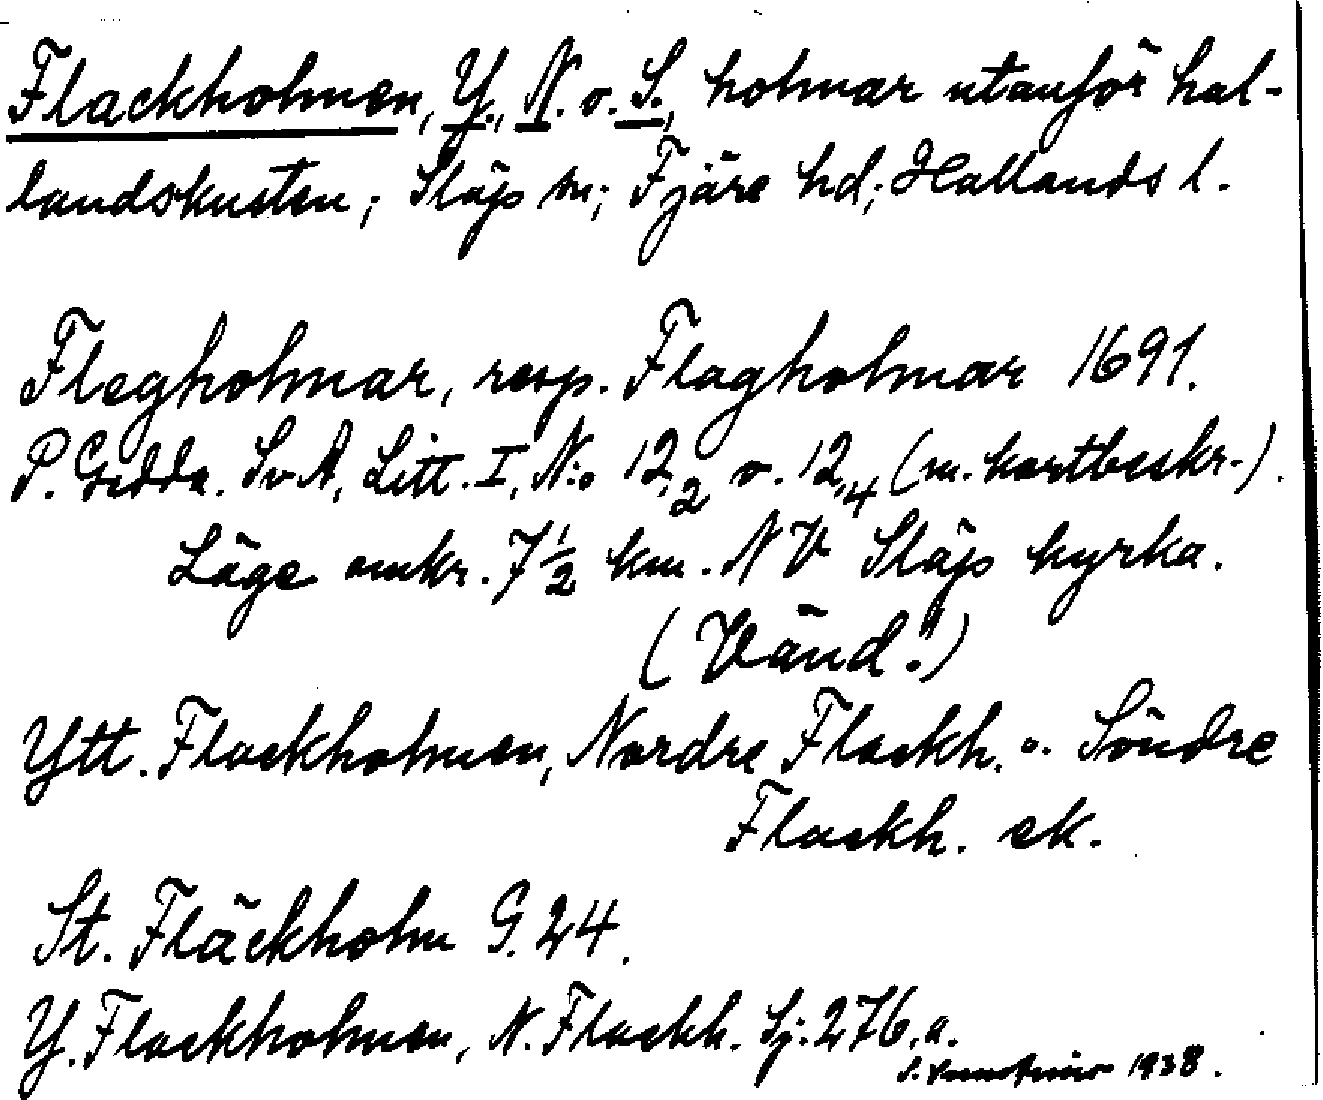 Flackholmen, Y., N. o. S., holmar utanför hal-
landskusten; Släp sn; Fjäre hd; Hallands l.
Flegholmar, resp. Flagholmar 1691.
P. Gedda. Sv A, Litt. I, N:o 12,2 o. 12,4 (m. kartbeskr.).
Läge omkr. 7 1/2 km. NV Släps kyrka.
(Vänd!)
Ytt. Flackholmen, Nordre Flackh. o. Söndre
Flackh. ek.
St. Fläckholm G. 24.
Y. Flackholmen, N. Flackh. Sj. 276.a.
1938.